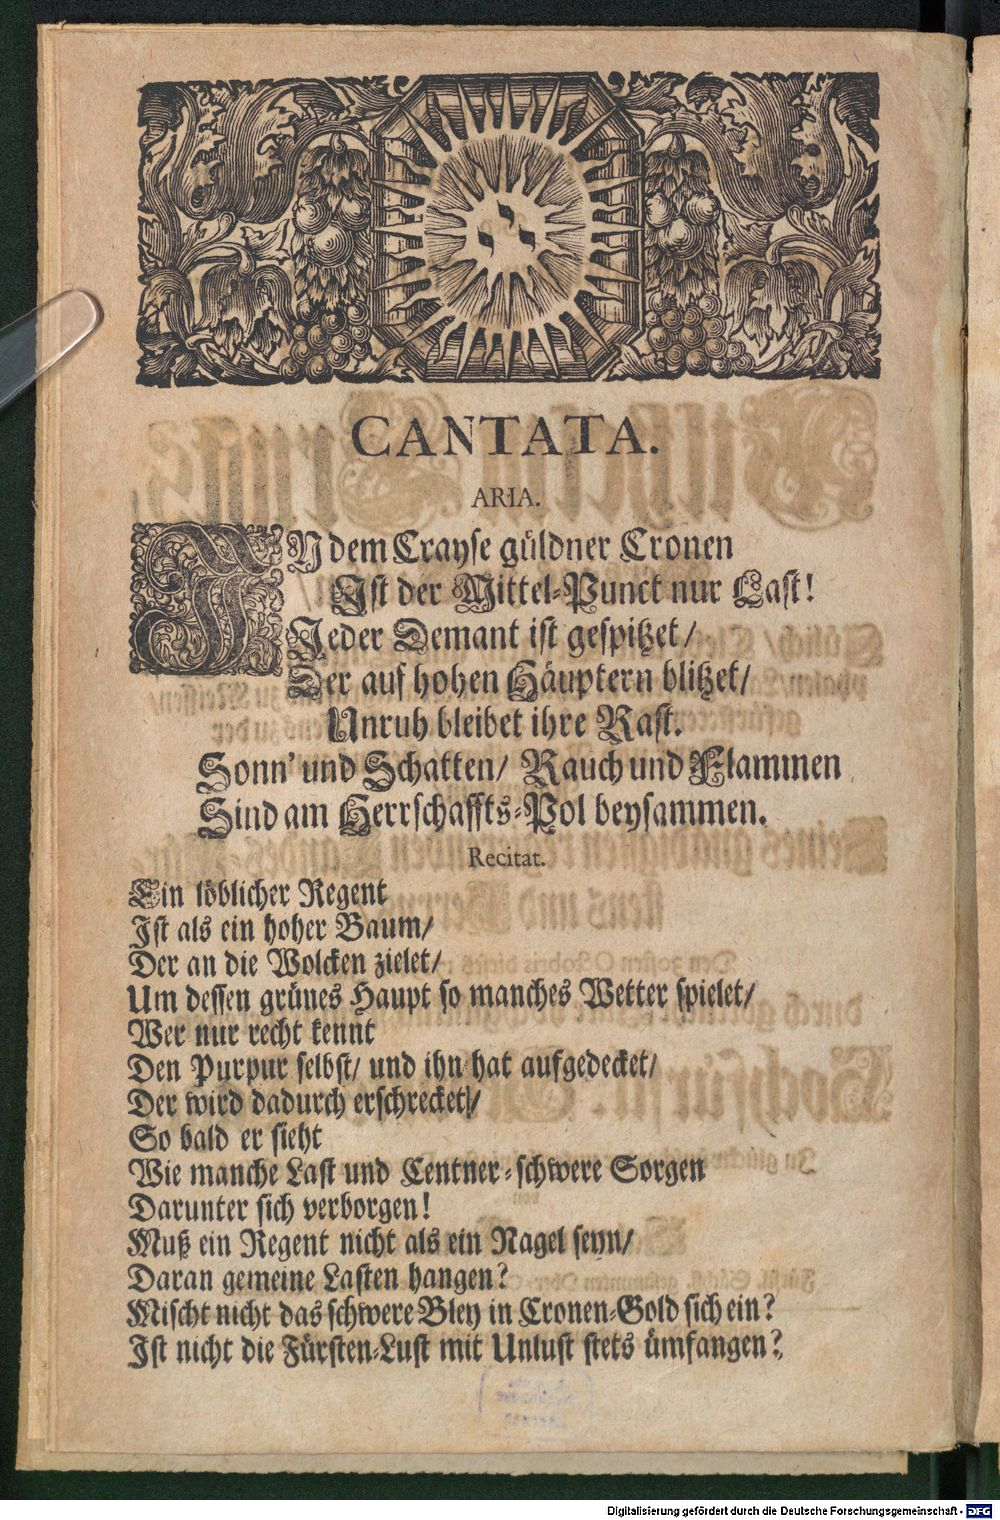 CANTATA.
ARIA.
IN dem Crayse güldner Cronen
Ist der Mittel-Punct nur Last!
Jeder Demant ist gespitzet/
Der auf hohen Häuptern blitzet/
Unruh bleibet ihre Rast.
Sonn' und Schatten/ Rauch und Flammen
Sind am Herrschaffts-Pol beysammen.
Recitat.
Ein löblicher Regent
Ist als ein hoher Baum/
Der an die Wolcken zielet/
Um dessen grünes Haupt so manches Wetter spielet/
Wer nur recht kennt
Den Purpur selbst/ und ihn hat aufgedecket/
Der wird dadurch erschrecket/
So bald er sieht
Wie manche Last und Centner-schwere Sorgen
Darunter sich verborgen!
Muß ein Regent nicht als ein Nagel seyn/
Daran gemeine Lasten hangen?
Mischt nicht das schwere Bley in Cronen-Gold sich ein?
Ist nicht die Fürsten-Lust mit Unlust stets ümfangen?
Digitalisierung gefördert durch die Deutsche Forschungsgemeinschaft - DFG